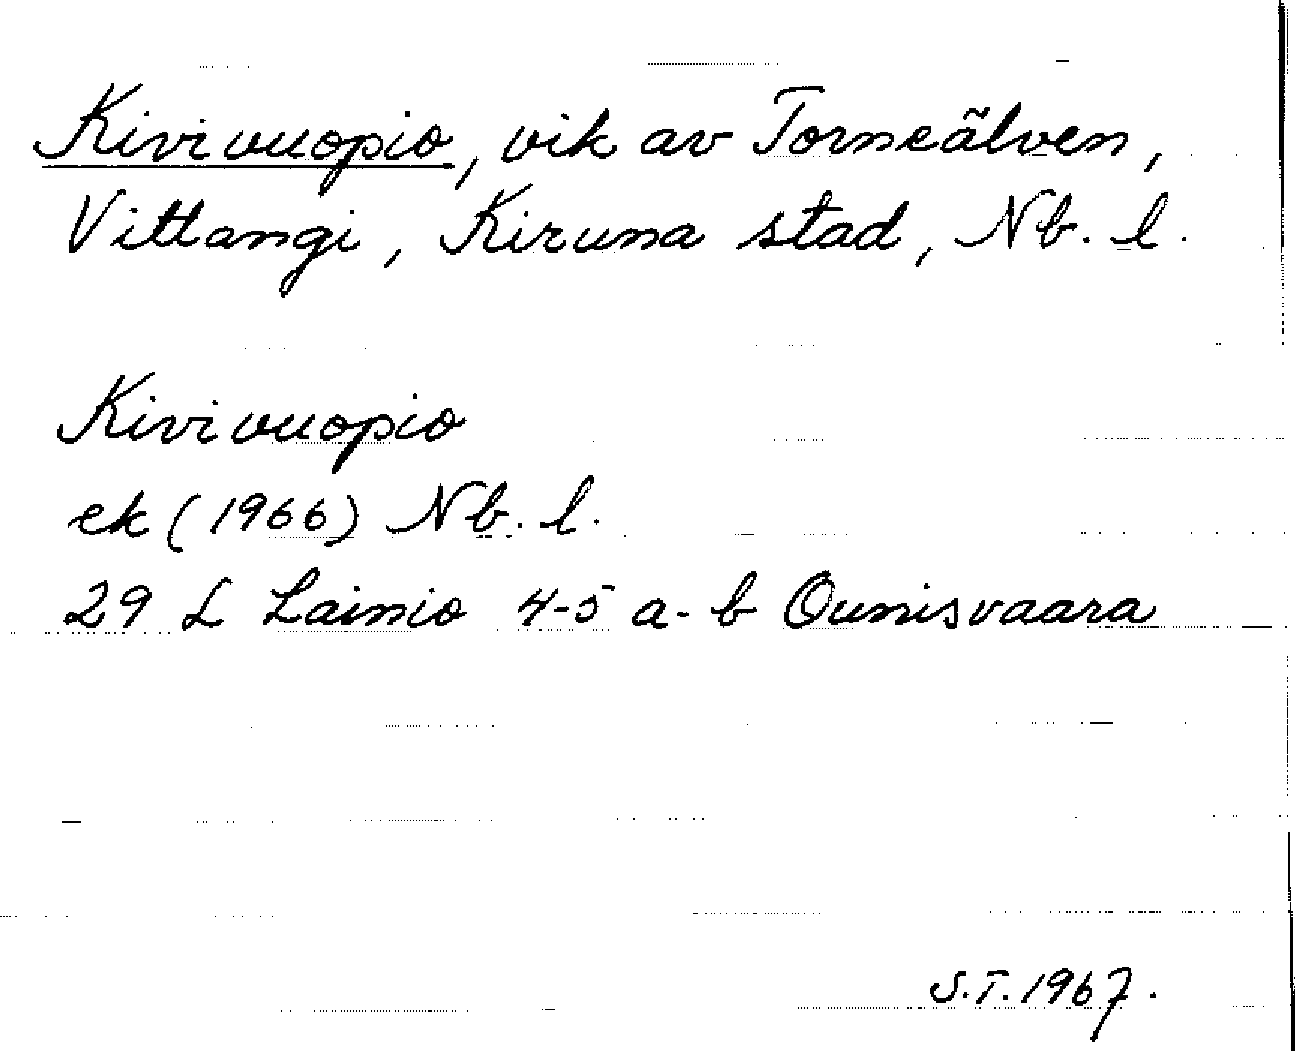 Kivivuopio, vik av Torneälven,
Vittangi, Kiruna stad, Nb. l.
Kivivuopio
ek (1966) Nb. l.
29 L Lainio 4-5 a-b Ounisvaara
S.T. 1967.